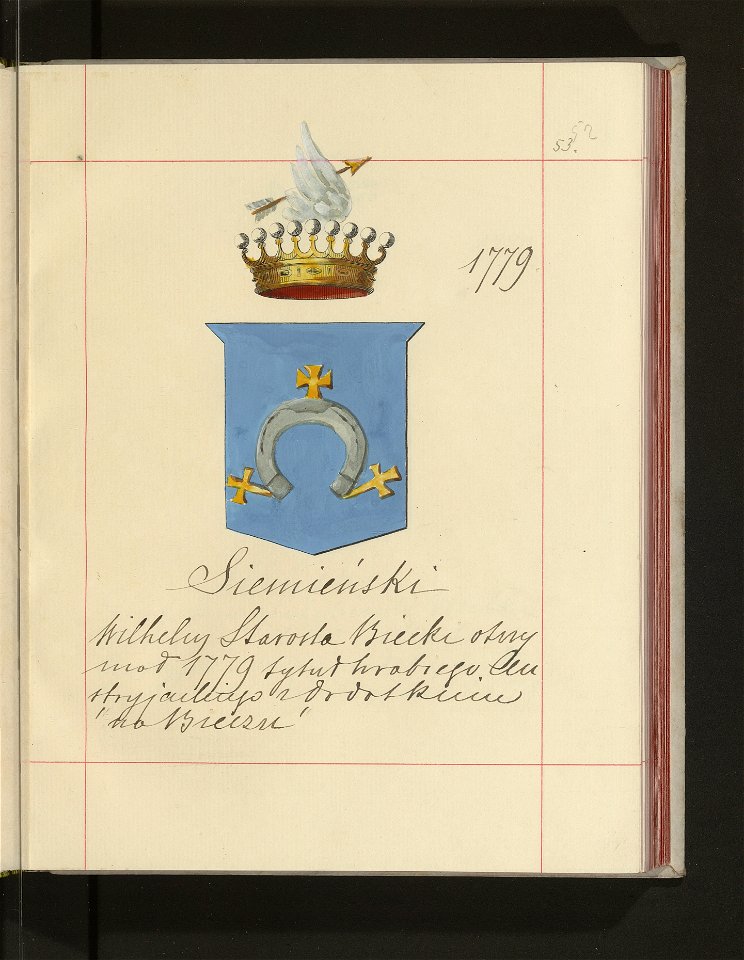 52
53.
1779
Siemieński
Wilhelm Starosta Biecki otrzy
mał 1779 tytuł hrabiego Au
stryjackiego z dodatkiem
"na Bieczu"